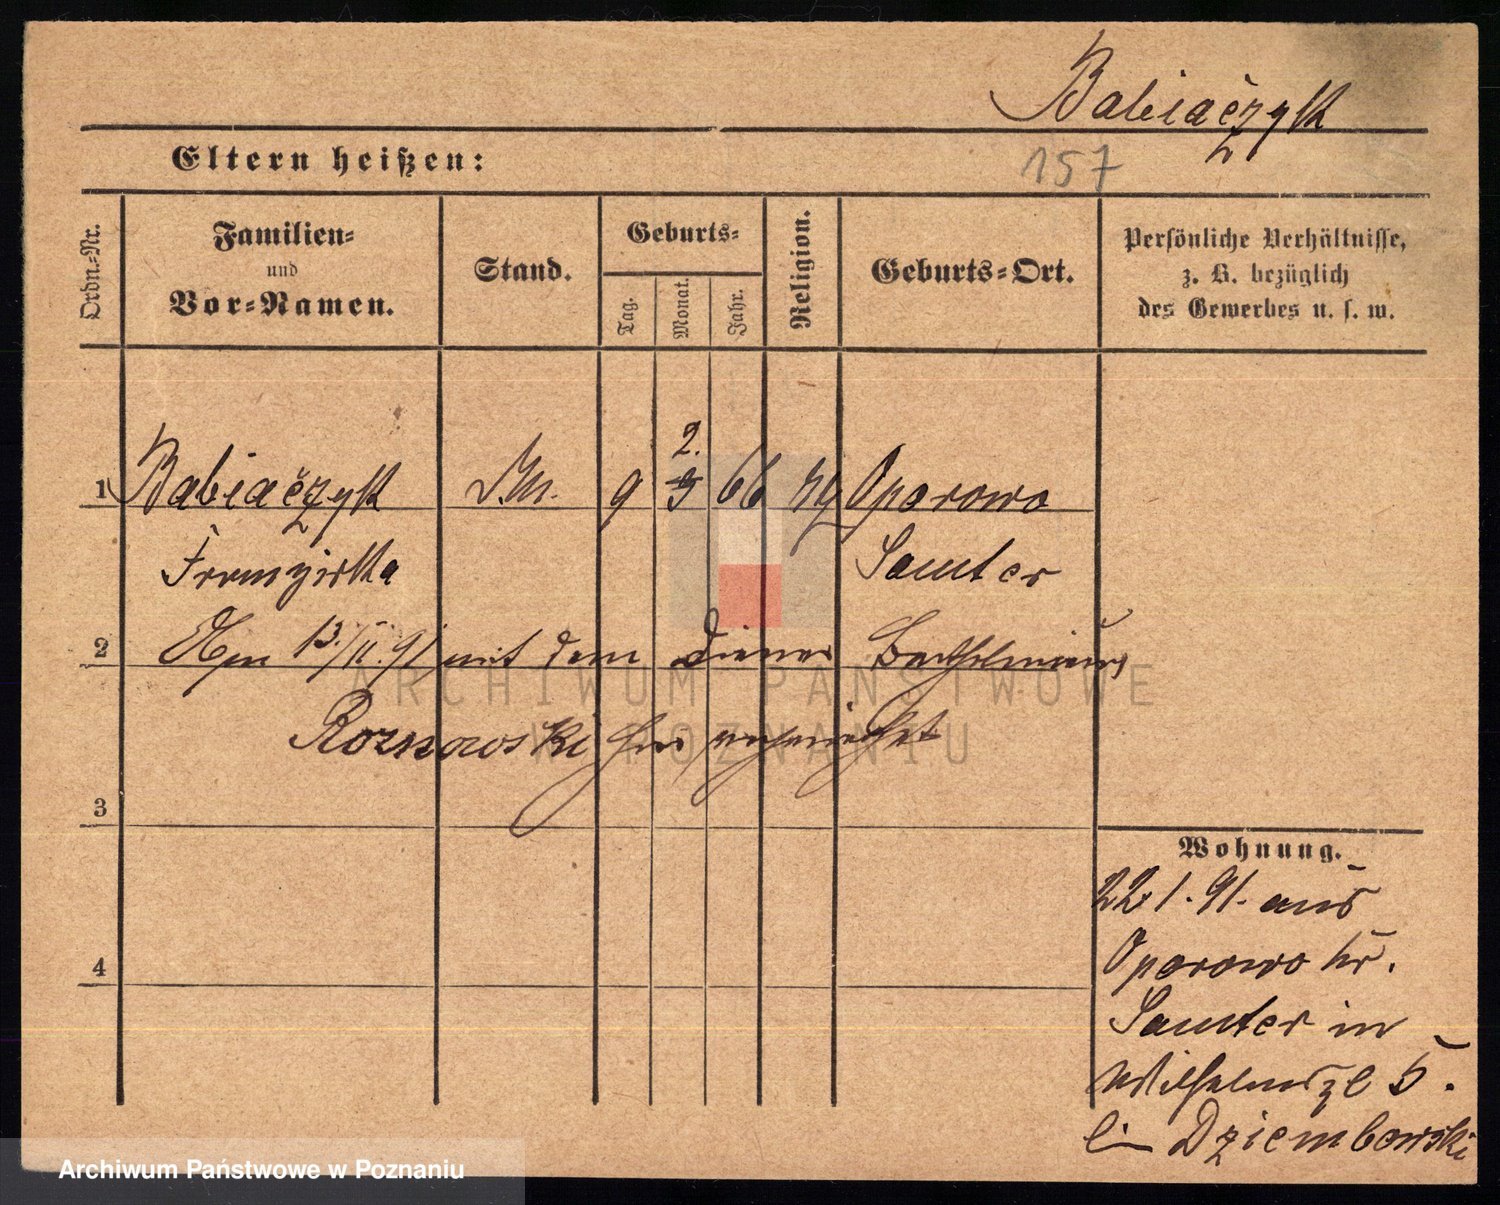 Babiačzyk
Eltern heißen:
157
Ordn.-Nr.
Familien-
und
Vor-Namen.
Stand.
Geburts-
Tag.
Monat.
Jahr.
Religion.
Geburts-Ort.
Persönliche Verhältnisse,
z. B. bezüglich
des Gewerbes u. s. w.
2.
1 Babiačzyk 9 3 66 Oporowo
Franziska Samter
2 Am 13./II.91 mit dem Diener
Roznowski hier
3
Wohnung.
22 1. 91. aus
Oporowo Kr.
4
Samter in
Wilhelmspl 5.
bei Dziembowski
ARCHIWUM PAŃSTWOWE
W POZNANIU
Archiwum Państwowe w Poznaniu